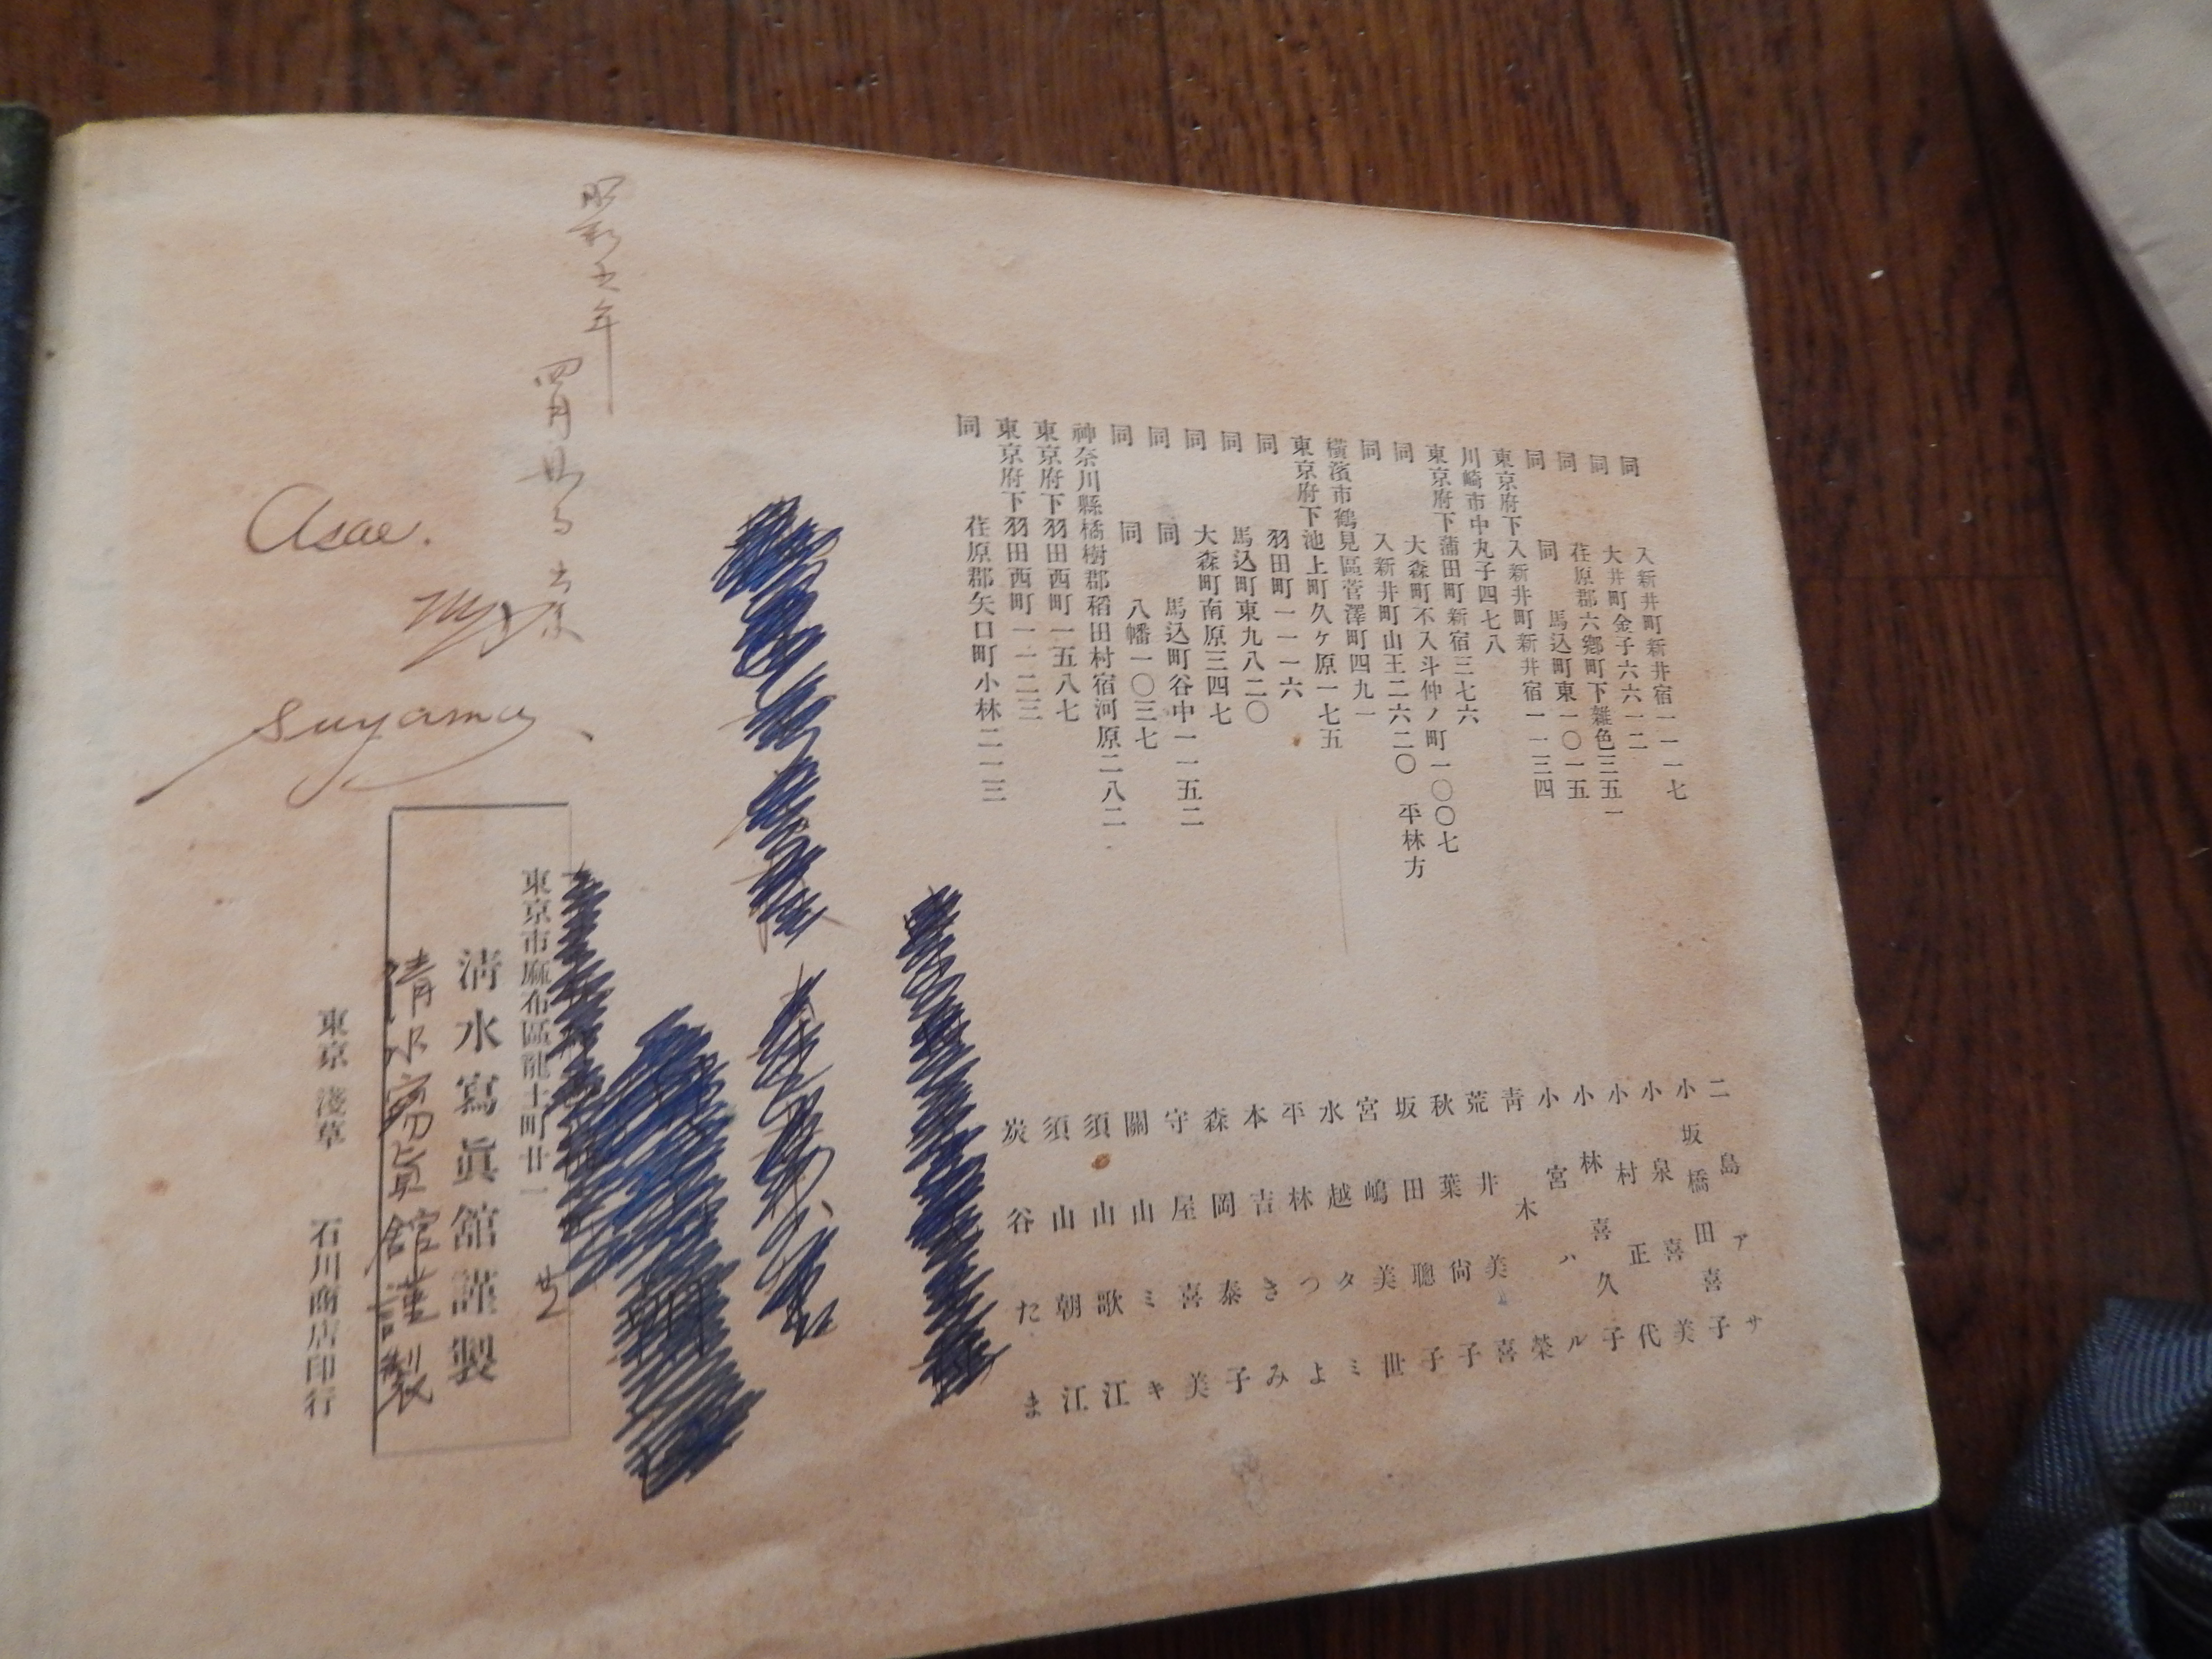 同　入新井町新井宿一一一七　二島アサ
同　大井町金子六六一二　小坂橋田喜子
同　荏原郡六郷町下雑色三五一　小泉喜美
同　同　馬込町東一〇一五　小村正代
東京府下入新井町新井宿一一三四　小林喜久子
川崎市中丸子四七八　小宮ハル
東京府下蒲田町新宿三七六　青木榮
同　大森町不入斗仲ノ町一〇〇七　荒井美喜
同　入新井町山王二六二〇　平林方　秋葉尙子
横濱市鶴見區菅澤町四九一　坂田聰子
東京府下池上町久ヶ原一七五　宮嶋美世
同　羽田町一一一六　水越タミ
同　馬込町東九八二〇　平林つよ
同　大森町南原三四七　本吉きみ
同　同　馬込町谷中一一五二　森岡泰子
同　同　八幡一〇三七　守屋喜美
神奈川縣橘樹郡稻田村宿河原二八二　關山ミキ
東京府下羽田西町一五八七　須山歌江
東京府下羽田西町一一二三　須山朝江
同　荏原郡矢口町小林二一三　炭谷たま
昭和五年
四月
Asae.
My
suyama
東京市麻布區龍土町廿一
清水寫眞舘謹製
清水寫眞舘謹製
東京淺草　石川商店印行